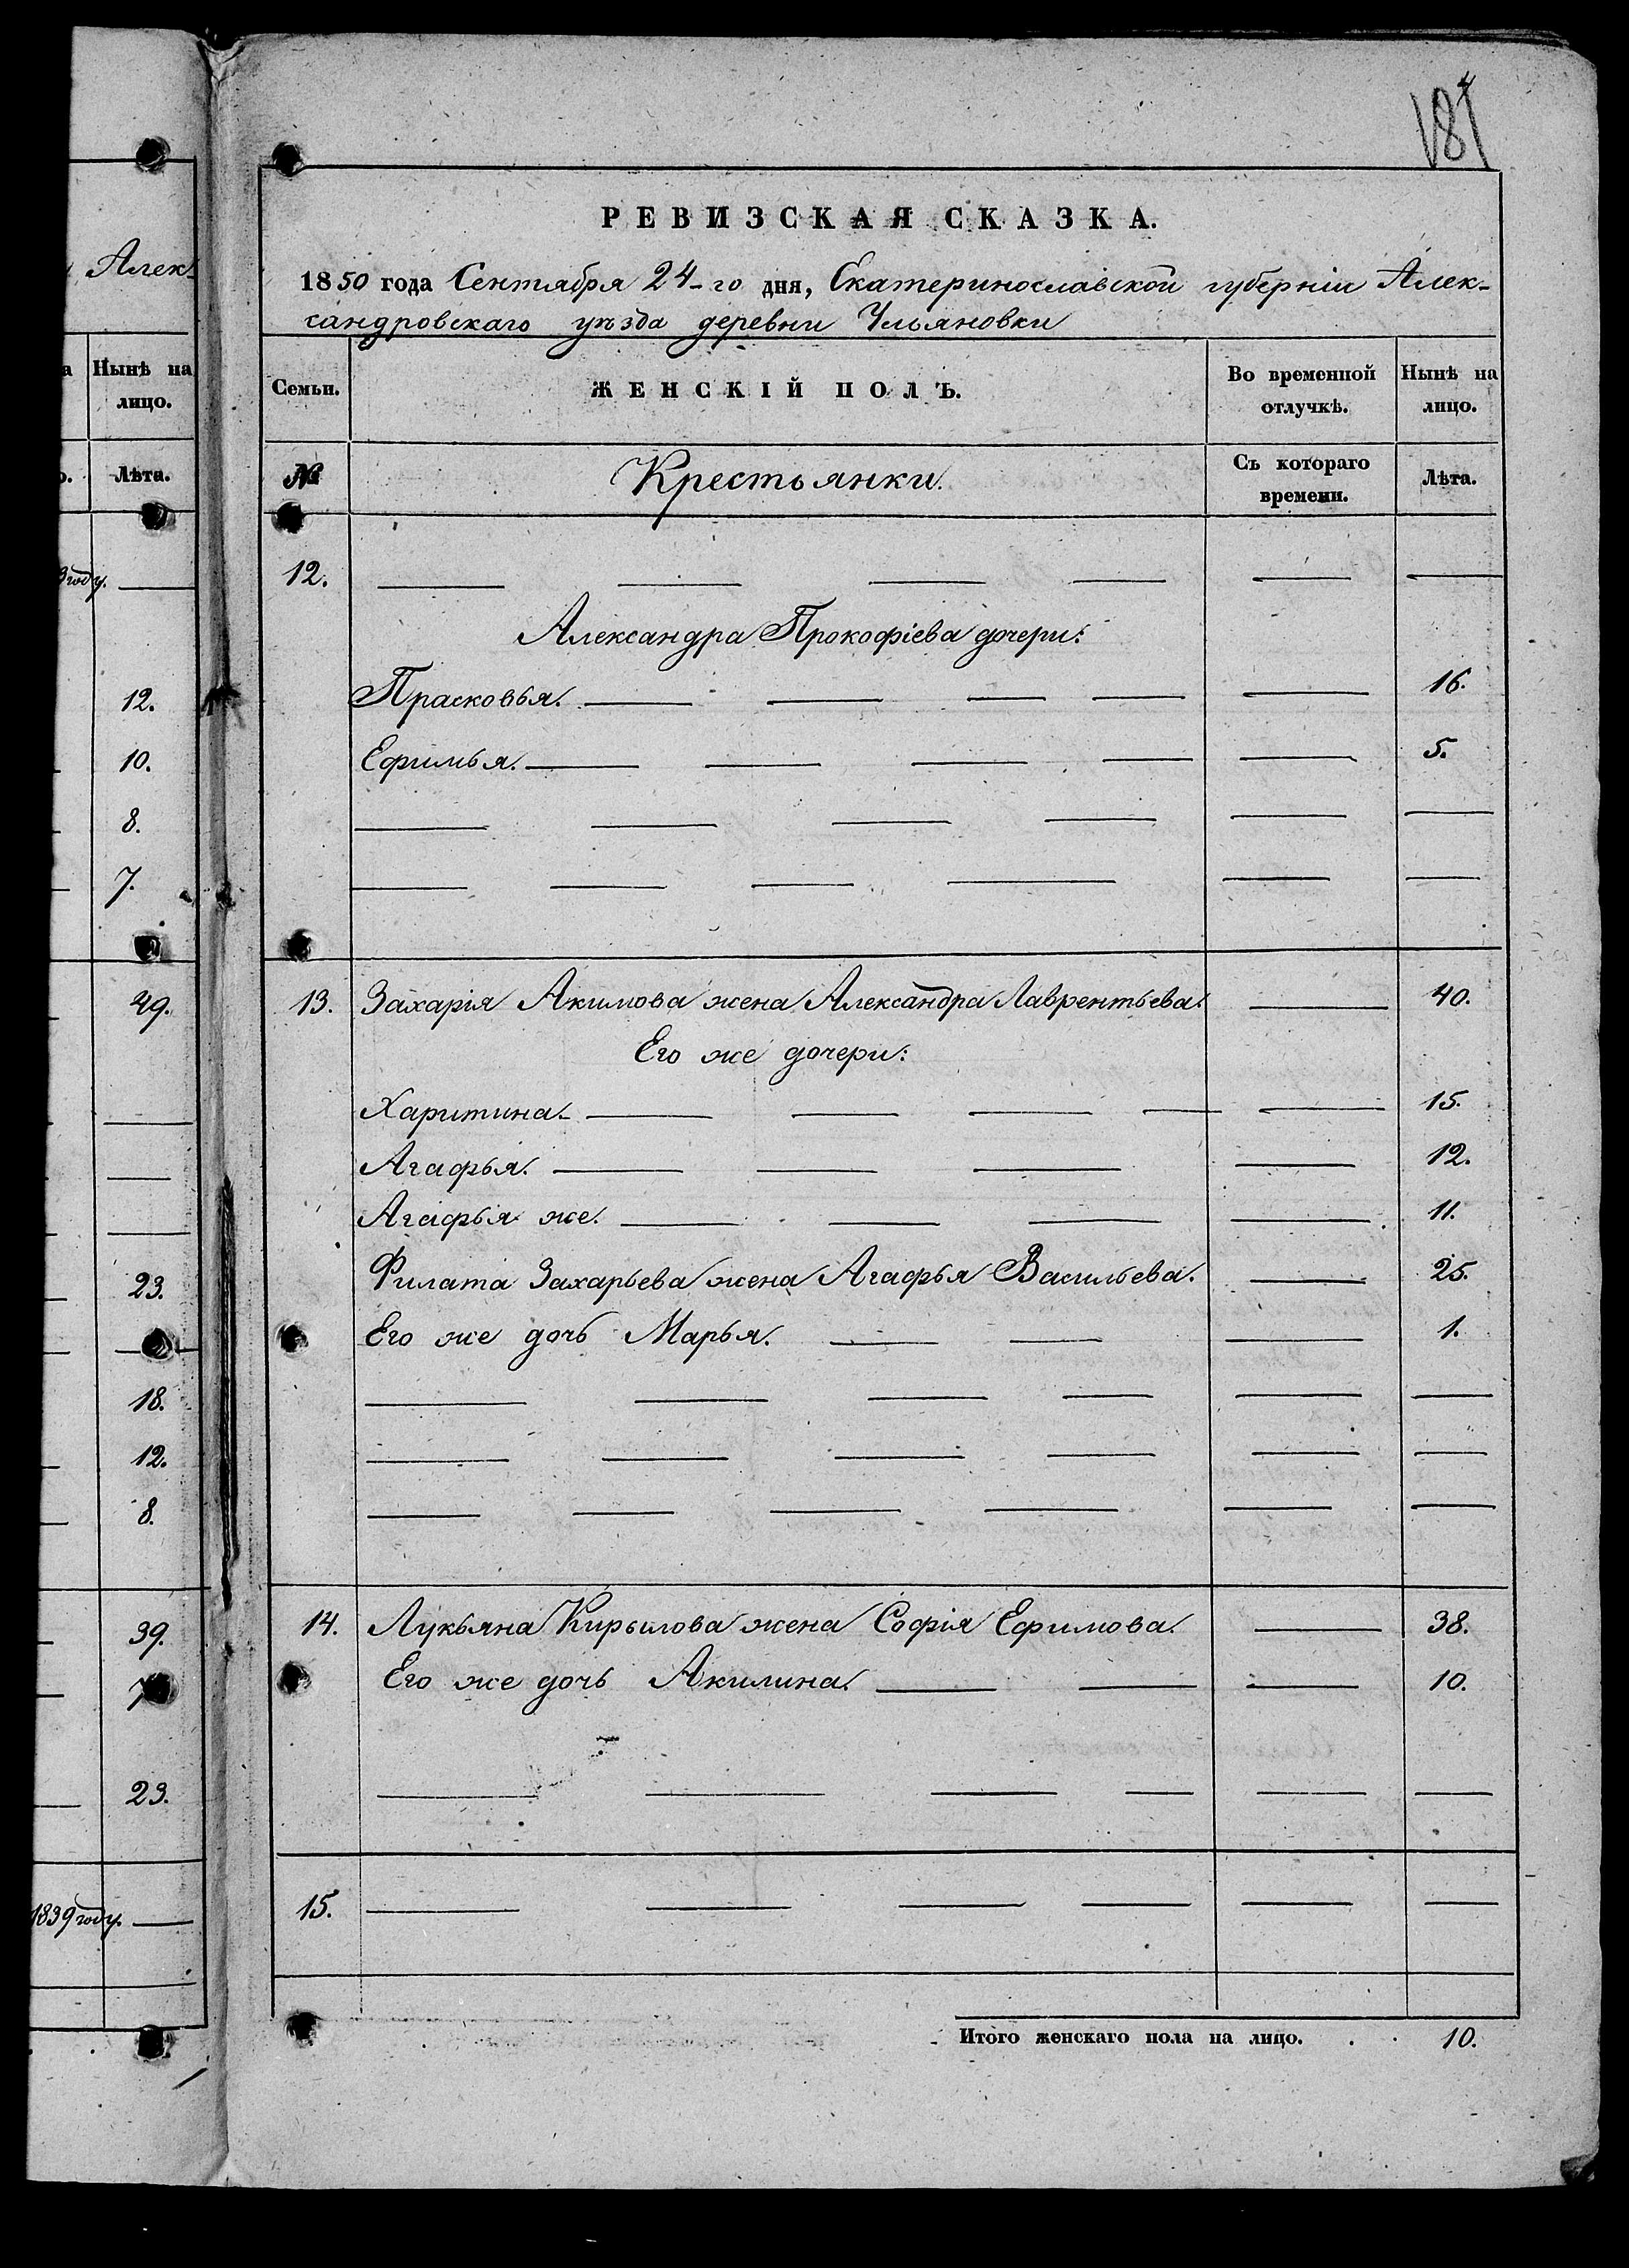 184
РЕВИЗСКАЯ СКАЗКА.
1850 года Сентября 24-го дня, Екатеринославской губерніи Алек-
сандровскаго уѣзда деревни Ульяновки
Семьи. ЖЕНСКІЙ ПОЛЪ. Во временной отлучкѣ. Нынѣ на лицо.
№ Крестьянки. Съ котораго времени. Лѣта.
12.
Александра Прокофіева дочери:
Прасковья. 16.
Ефимья. 5.
13. Захарія Акимова жена Александра Лаврентьева. 40.
Его же дочери:
Харитина. 15.
Агафья. 12.
Агафья же. 11.
Филата Захарьева жена Агафья Васильева. 25.
Его же дочь Марья. 1.
14. Лукьяна Кирылова жена Софія Ефимова. 38.
Его же дочь Акилина. 10.
15.
Итого женскаго пола на лицо. 10.
Алек-
Нынѣ на
лицо.
Лѣта.
году.
12.
10.
8.
7.
49.
23.
18.
12.
8.
39.
7
23.
1839 году.